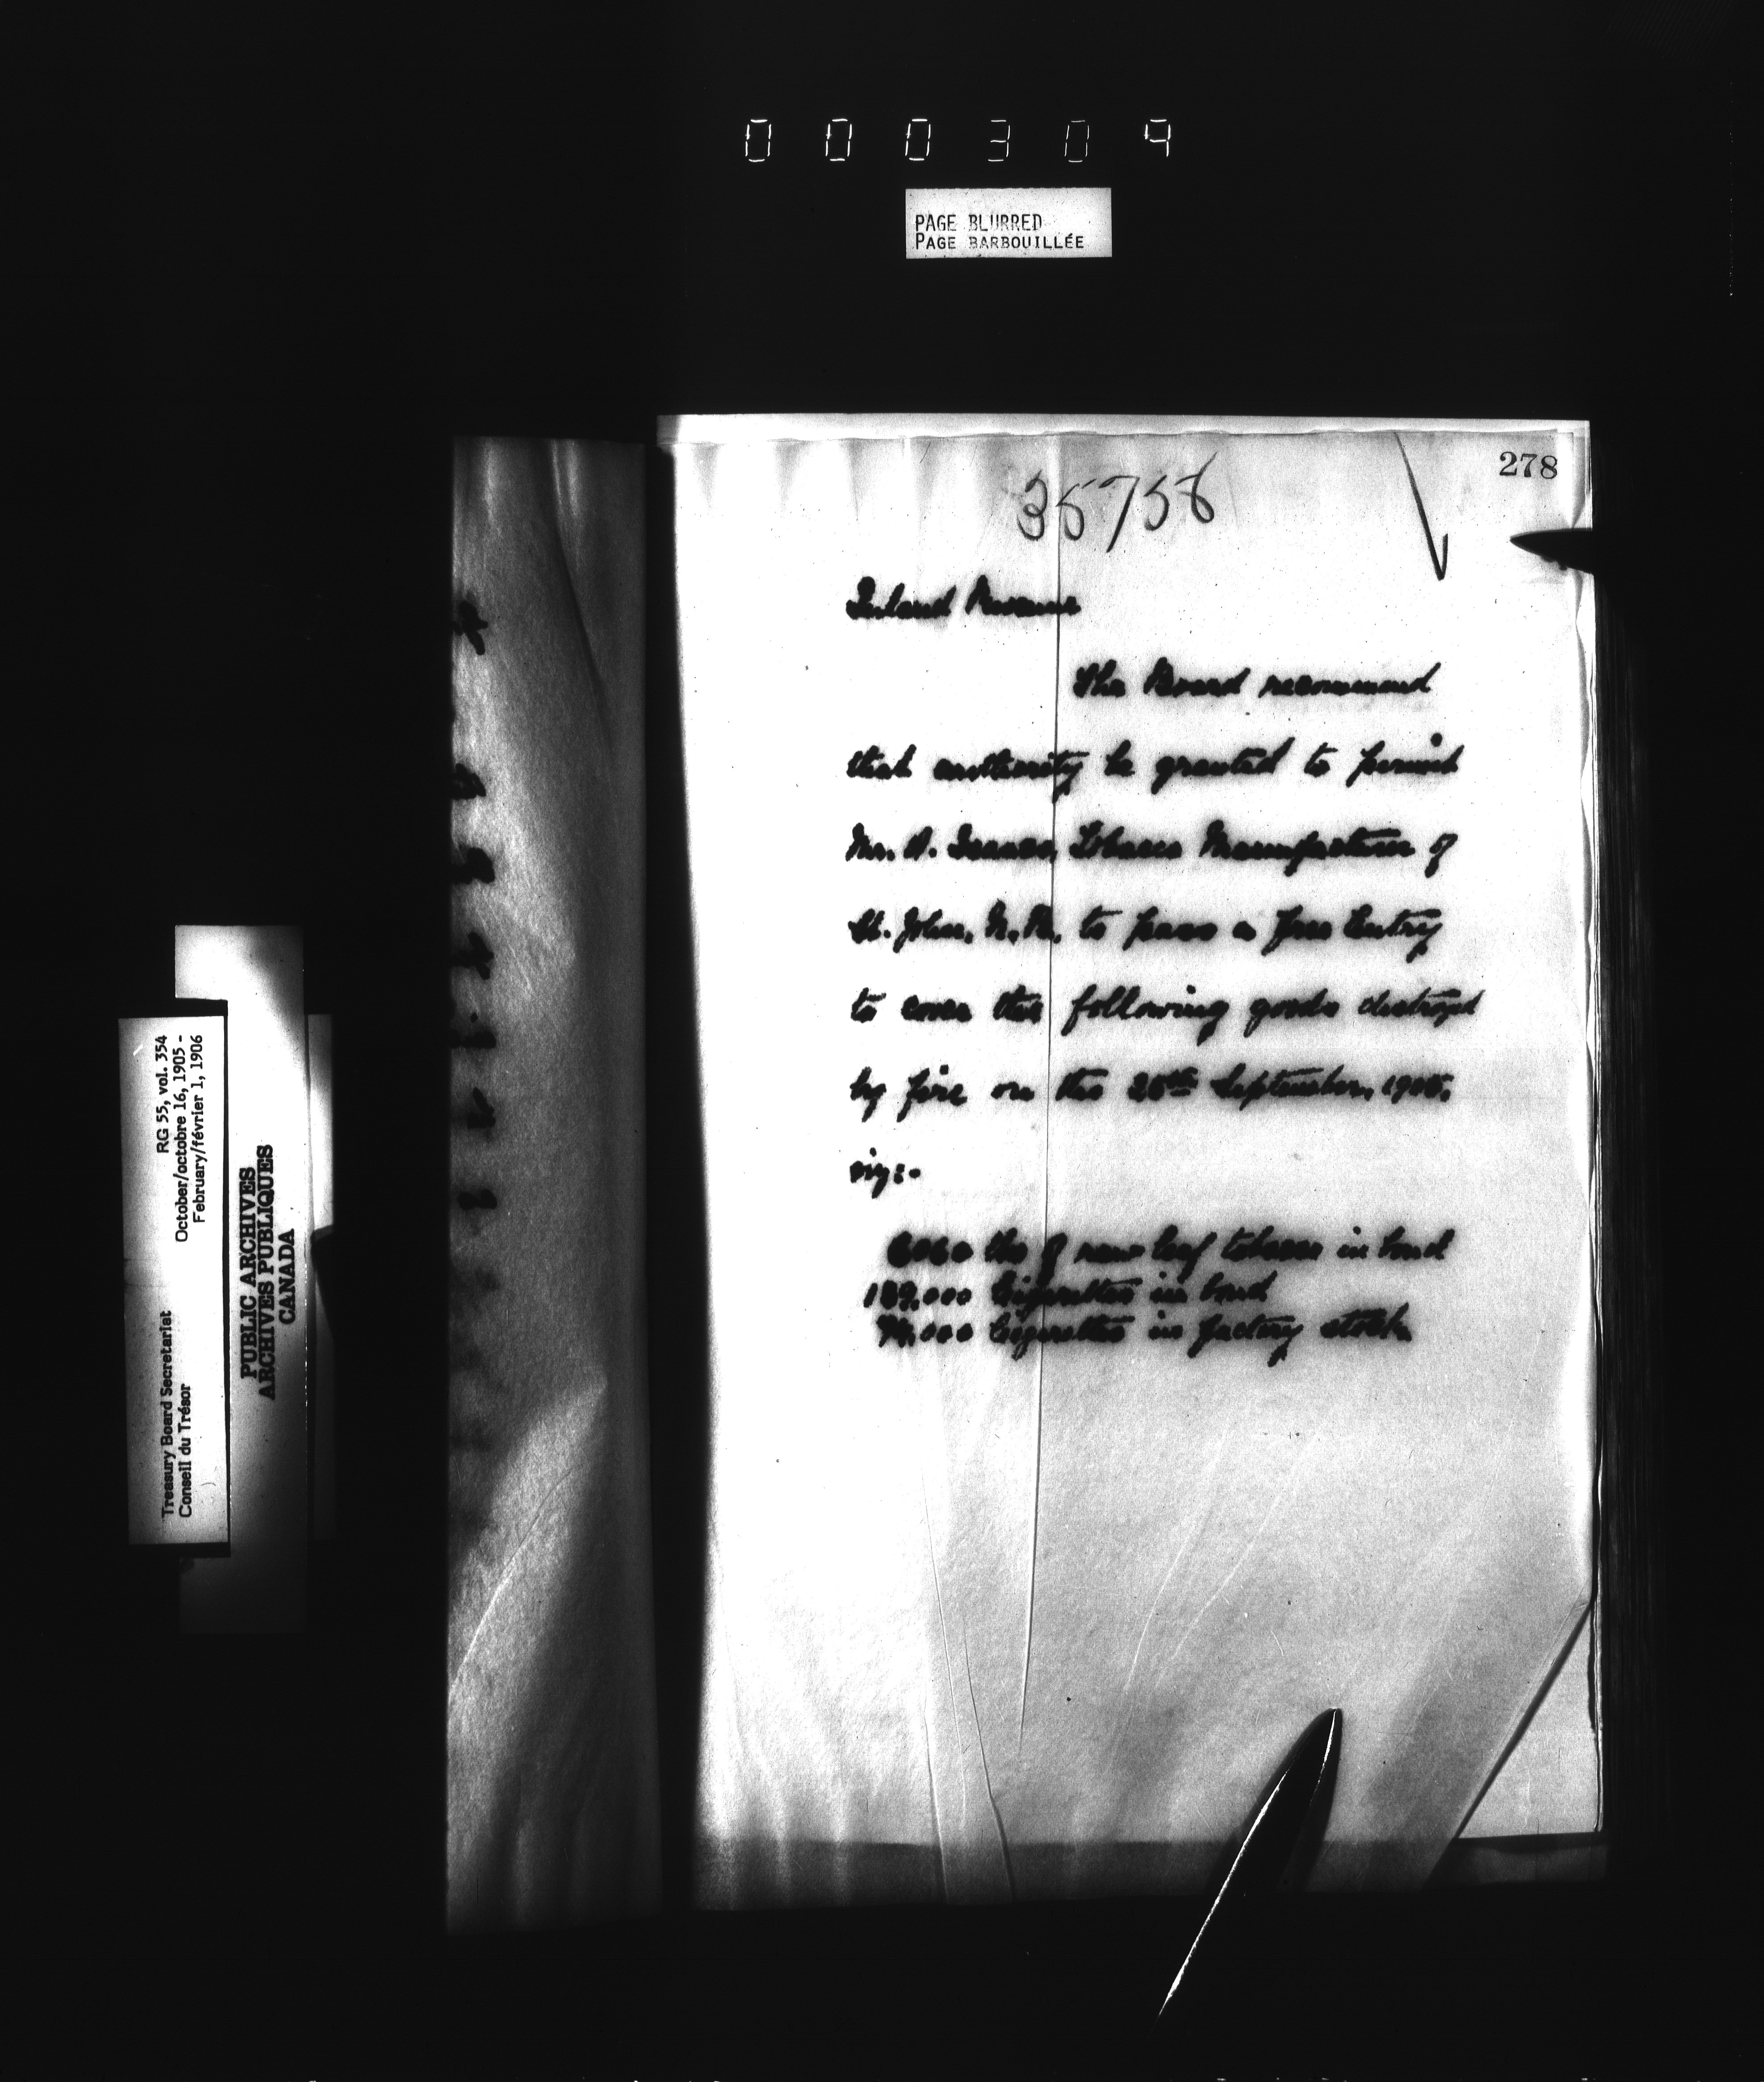 000304
PAGE BLURRED
PAGE BARBOUILLÉE
278
35758
Inland Revenue
The Board recommend
that authority be granted to permit
Mr. A. Isaacs, Tobacco Manufacturer of
St. John, N.B. to pass a free Entry
to cover the following goods destroyed
by fire on the 25th September, 1905.
viz:-
6060 lbs of raw leaf tobacco in bond
189,000 Cigarettes in bond
,000 Cigarettes in factory stock.
RG 55, vol. 354
October/octobre 16, 1905 -
February/février 1, 1906
Treasury Board Secretariat
Conseil du Trésor
PUBLIC ARCHIVES
ARCHIVES PUBLIQUES
CANADA